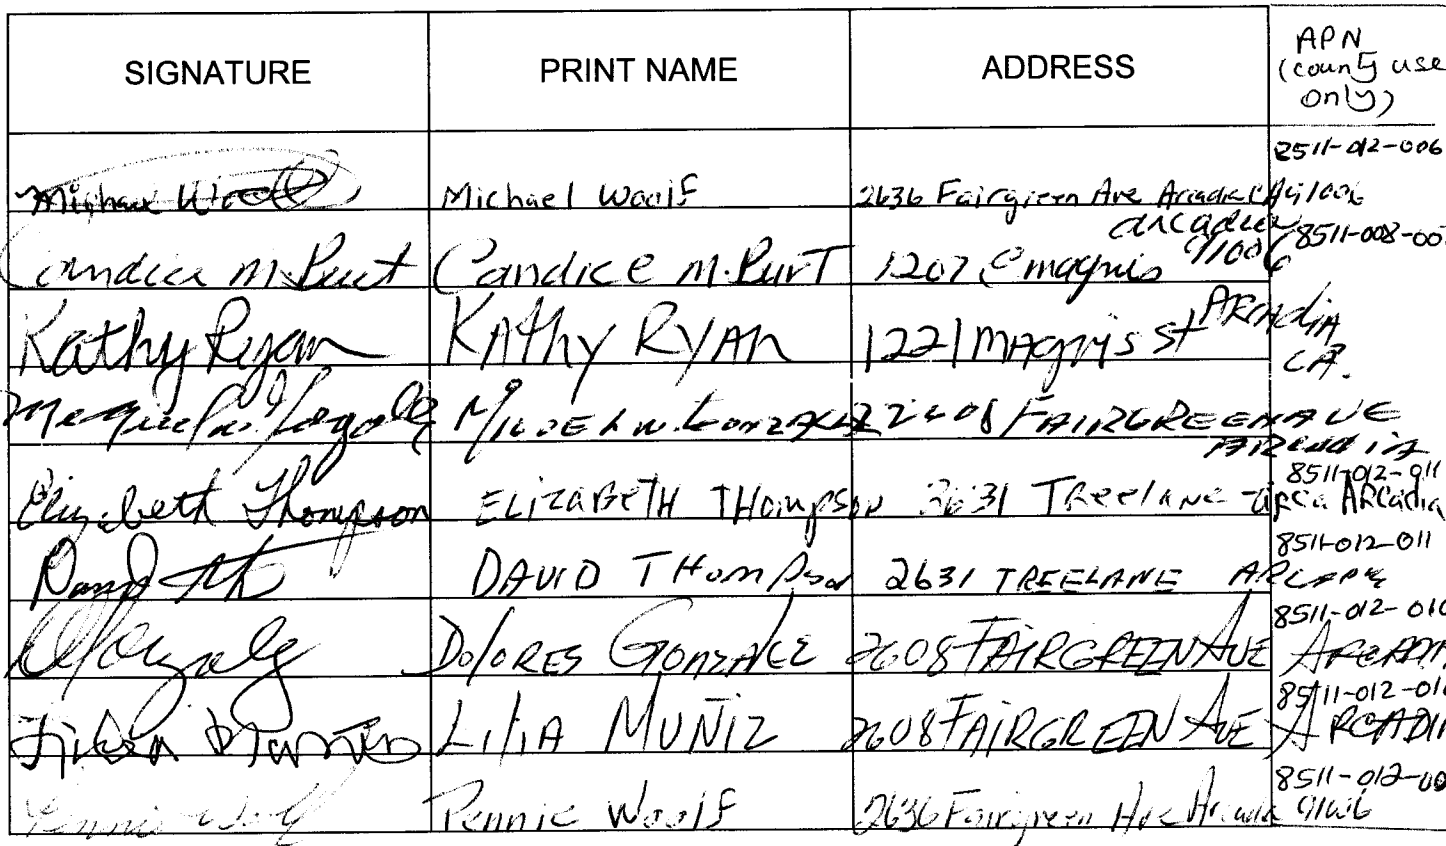 SIGNATURE PRINT NAME ADDRESS APN
(county use
only)
8511-012-006
Michael Woolf Michael Woolf 2636 Fairgreen Ave Arcadia CA 91006
arcadia
91006 8511-008-00
Candice M. Burt Candice M. Burt 1207 E magnis
Kathy Ryan KAthy RYAn 1221 MAgnis St ARcadiA
CA.
Miguel W. Gonzalez 2608 FAIRGREEN AVE
ARCADIA
8511-012-011
Elizabeth Thompson ELIZABETH THompson 2631 TReelane Arcadia
8511-012-011
David DAVID THompson 2631 TREELANE ARCADIA
8511-012-010
DGonzalez DOlORES GONZALEZ 2608 FAIRGREEN AVE ARCADIA
8511-012-010
LiliA MUÑIZ 2608 FAIRGREEN AVE ARCADIA
8511-012-00
Pennie Woolf Pennie Woolf 2636 Fairgreen Ave Arcadia 91006